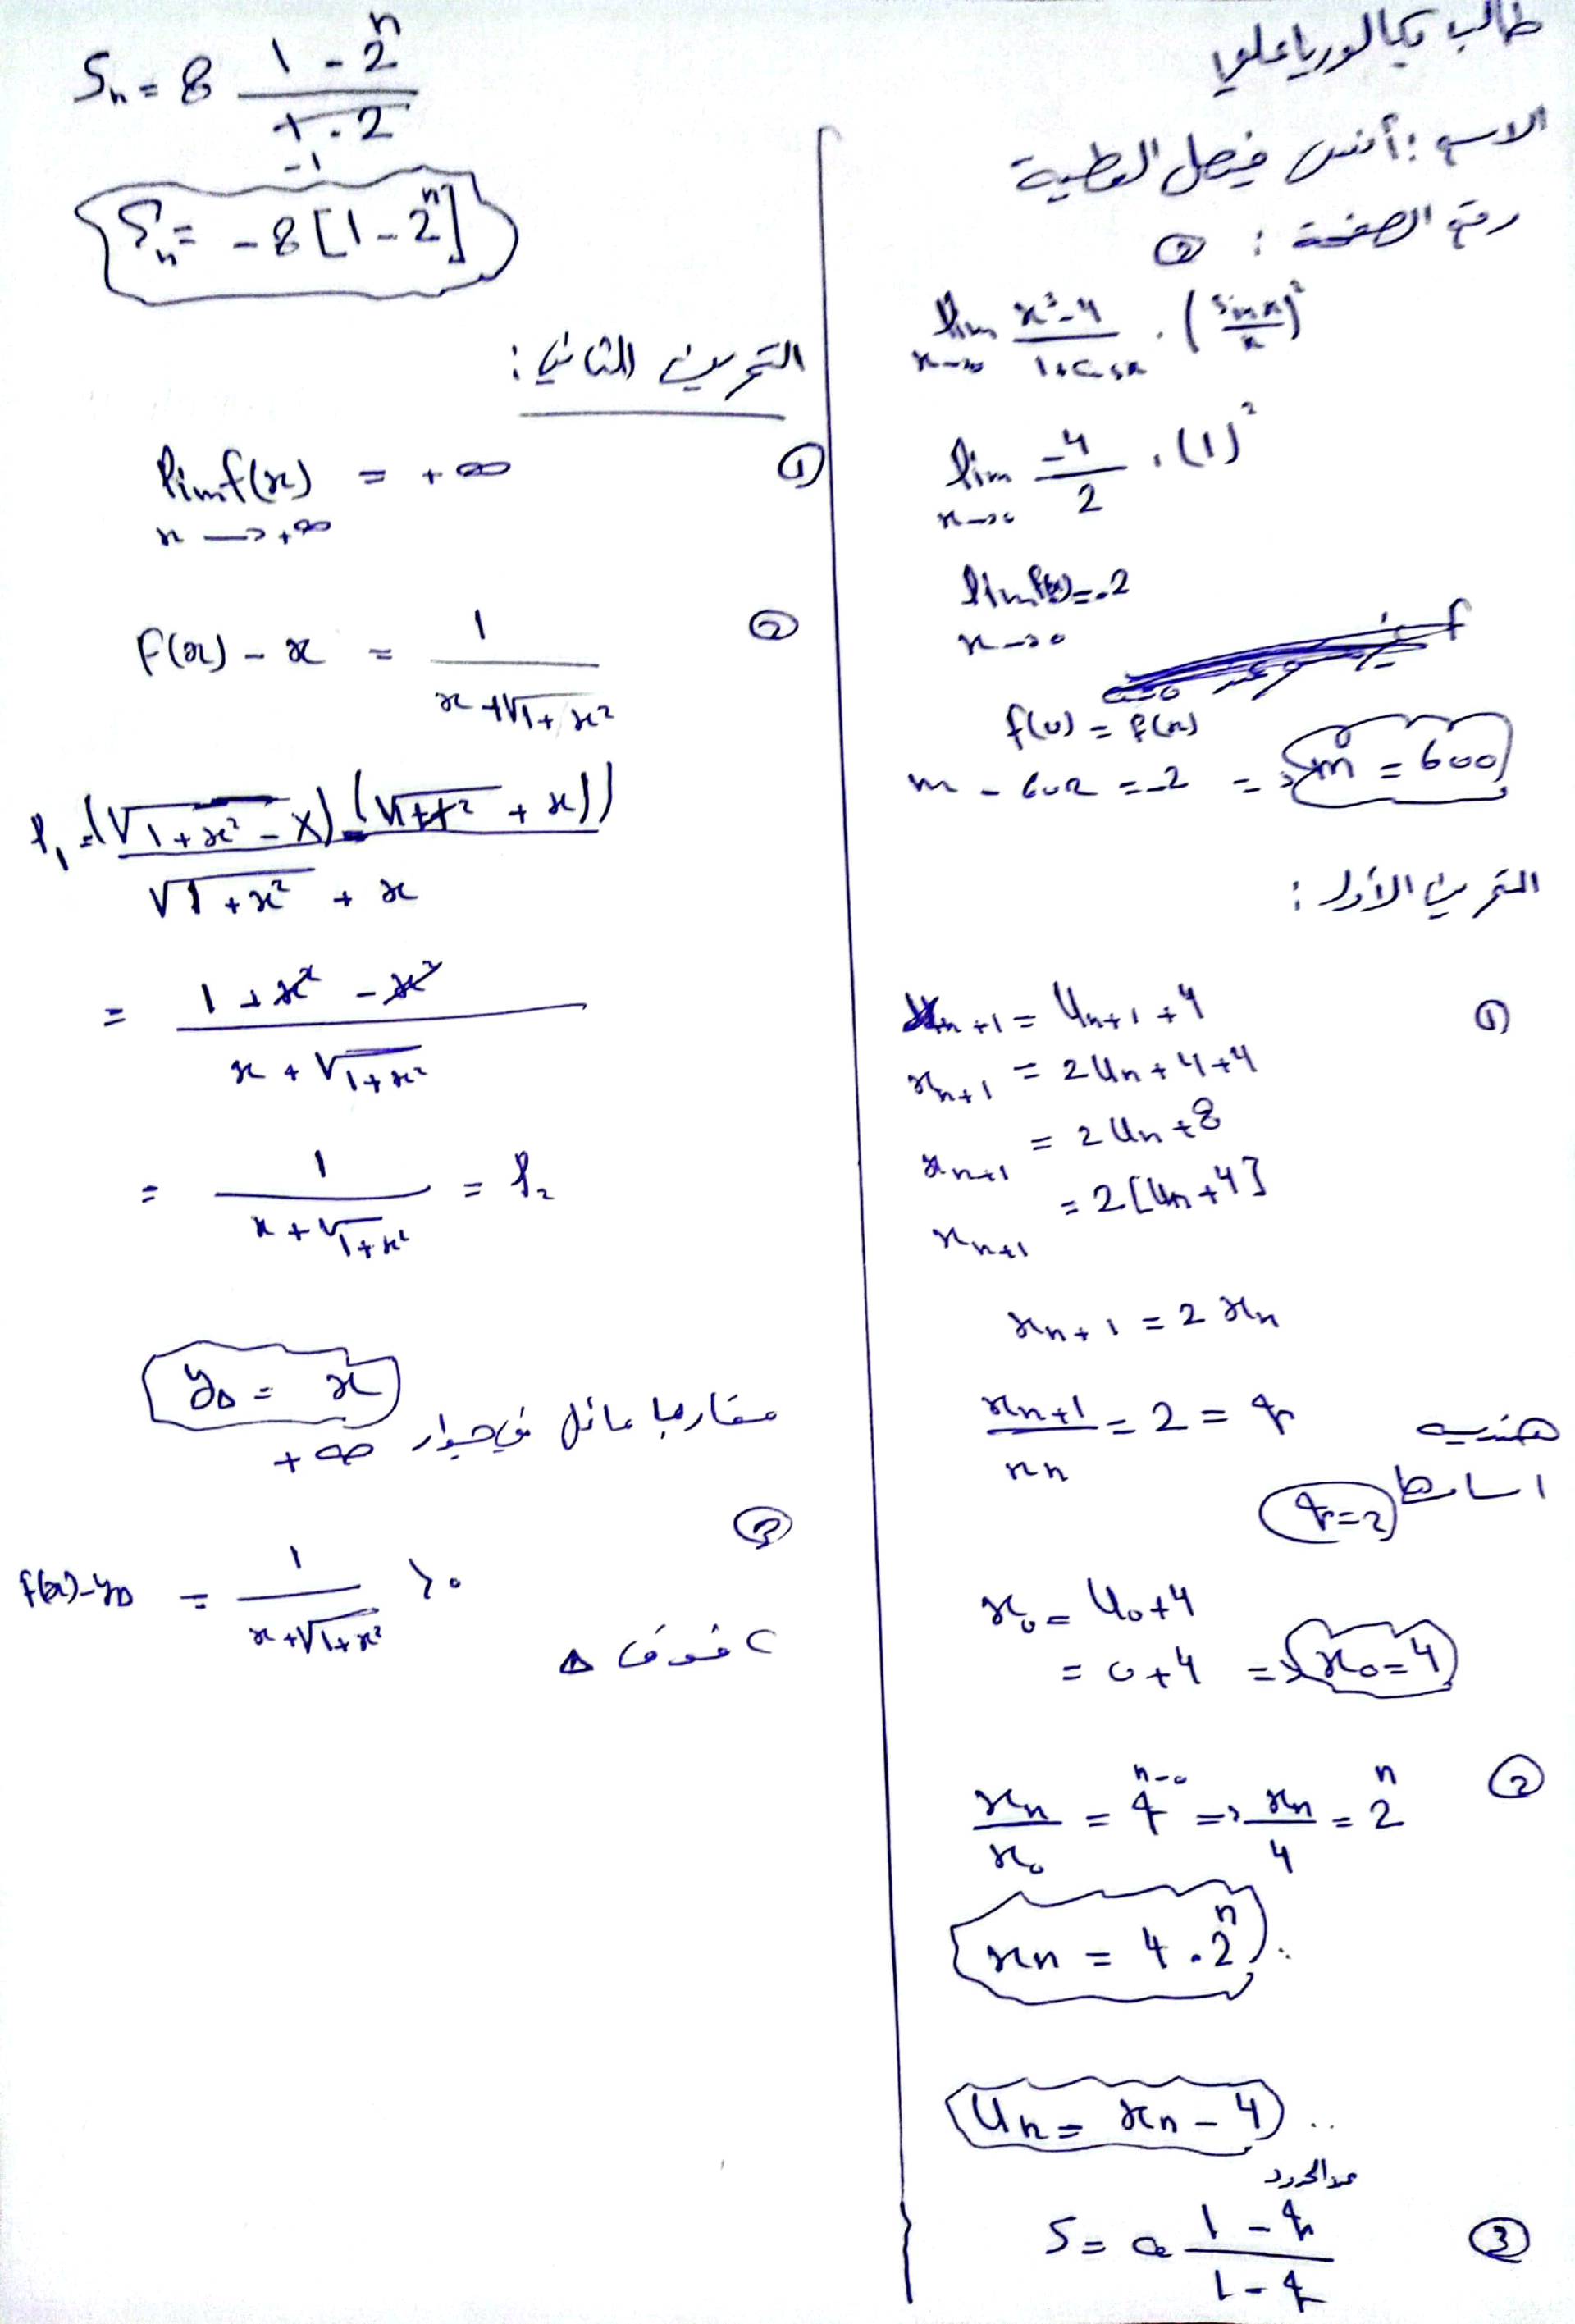 طالب بكالوريا علمي
الاسم : أنس فيصل العطية
رقم الصفحة : ②
lim x→0 (x²-4)/(1+cosx) . (sinx/x)²
lim x→0 -4/2 . (1)²
lim f(x) = -2
x→0
f(0) = f(x)
m - 602 = -2 => m = 600
التمرين الأول :
① x_{n+1} = U_{n+1} + 4
x_{n+1} = 2U_n + 4 + 4
x_{n+1} = 2U_n + 8
x_{n+1} = 2[U_n + 4]
x_{n+1} = 2x_n
x_{n+1}/x_n = 2 = q هندسية
اساسها q=2
x_0 = U_0 + 4
= 0 + 4 => x_0 = 4
② x_n/x_0 = q^{n-0} => x_n/4 = 2^n
x_n = 4 . 2^n
U_n = x_n - 4
عدد الحدود
③ S = a (1 - q)/(1 - q)
S_n = 8 (1 - 2^n)/(1 - 2)
-1
S_n = -8 [1 - 2^n]
التمرين الثاني :
① lim f(x) = +∞
x → +∞
② f(x) - x = 1/(x + √(1+x²))
l₁ = (√(1+x²) - x)(√(1+x²) + x)/(√(1+x²) + x)
= (1 + x² - x²)/(x + √(1+x²))
= 1/(x + √(1+x²)) = l₂
y_Δ = x
مقاربا مائل في جوار +∞
③ f(x) - y_Δ = 1/(x + √(1+x²)) > 0
C فوق Δ